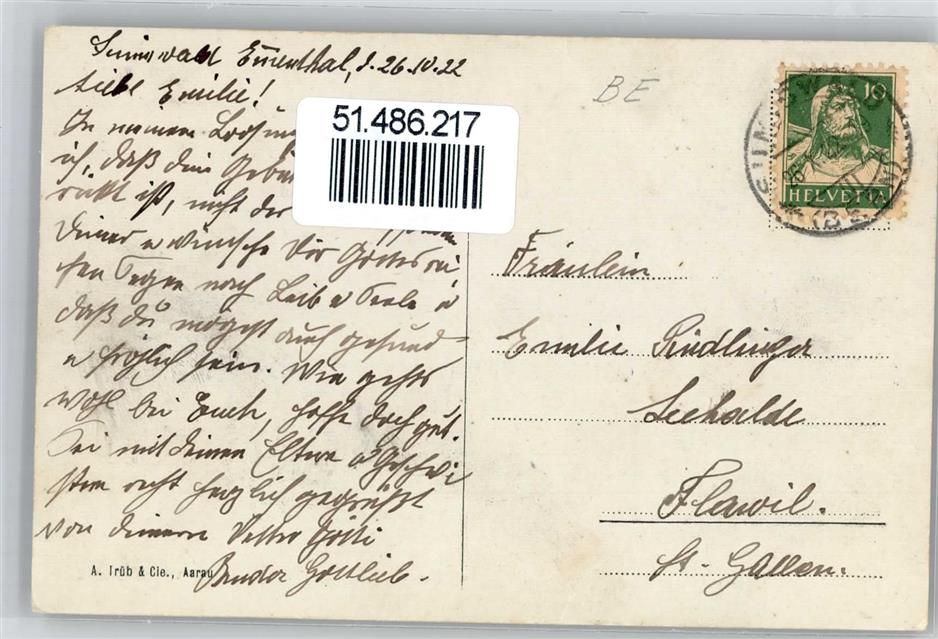 Sumiswald Emmenthal, d. 26.10.22
Liebe Emilie!
In meinem Losung
ich, daß dein Gebu
rückt ist, nicht
deiner u wünsche Dir Gottes rei
chen Segen nach Leib u Seele u
daß du mögest auch gesund
u fröhlich sein. Wie gehts
wohl bei Euch, hoffe doch gut.
Sei mit deinen Eltern u Geschwi
stern recht herzlich gegrüßt
von deinem Vetter Götti
Bruder Gottlieb.
A. Trüb & Cie., Aarau
51.486.217
BE
10
HELVETIA
SUMISWALD
(BERN)
Fräulein
Emilie Riedlinger
Seehalde
Flawil.
St. Gallen.